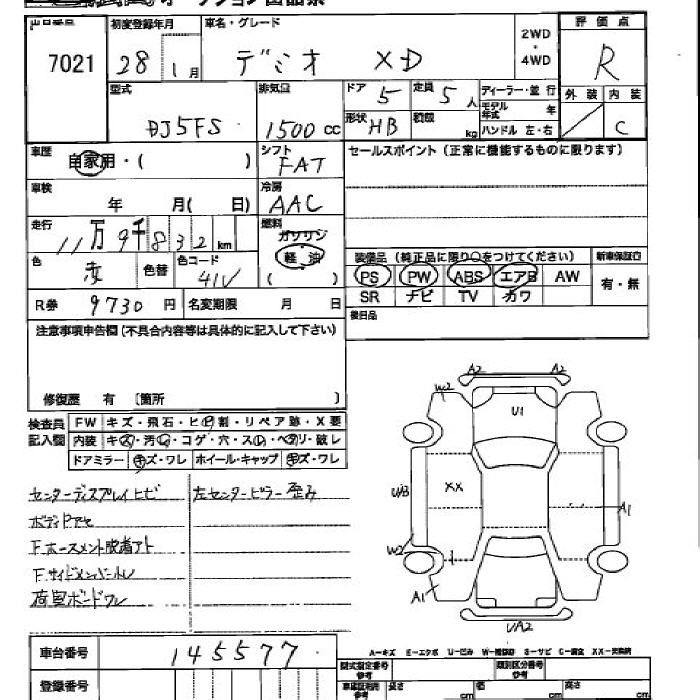 出品番号 初度登録年月 車名・グレード 2WD・4WD 評価点
7021 28 1月 デミオ XD R
型式 排気量 ドア 5 定員 5人 ディーラー・並行 外装 内装
モデル年式 年
DJ5FS 1500cc 形状 HB 積載 kg ハンドル 左・右 C
車歴 自家用・( ) シフト FAT セールスポイント(正常に機能するものに限ります)
車検 年 月( 日) 冷房 AAC
走行 11万9千832km 燃料 ガソリン
軽油
( )
色 赤 色替 色コード 41V
装備品(純正品に限り○をつけてください) 新車保証書
PS PW ABS エアB AW 有・無
SR ナビ TV カワ
R券 9730円 名変期限 月 日 後日品
注意事項申告欄(不具合内容等は具体的に記入して下さい)
修復歴 有 〔箇所 〕
検査員記入欄 FW キズ・飛石・ヒビ割・リペア跡・X要
内装 キズ・汚レ・コゲ・穴・スレ・ヘタリ・破レ
ドアミラー キズ・ワレ ホイール・キャップ キズ・ワレ
センターディスプレイトビ 左センターピラー歪み
ボディアセ
F.サイドメンバー
荷室ボードワレ
A2 A2
W2 U1
XX
A1
W2
A1
UA2
車台番号 145577
登録番号
A-キズ E-エクボ U-凹み S-サビ
型式指定番号 参考 類別区分番号 参考
長さ cm 幅 cm 高さ cm